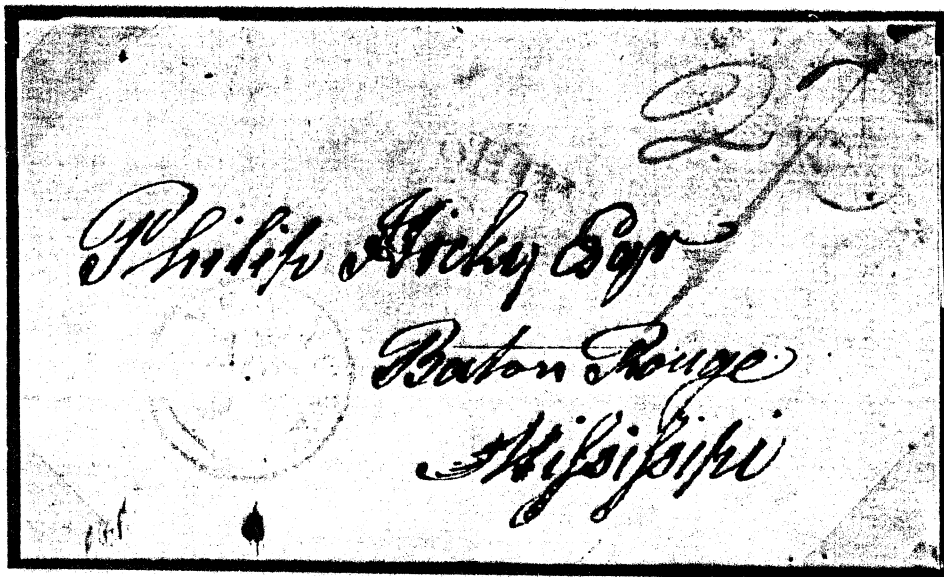 27
Philip Hicky Esqr
Baton Rouge
Missisipi